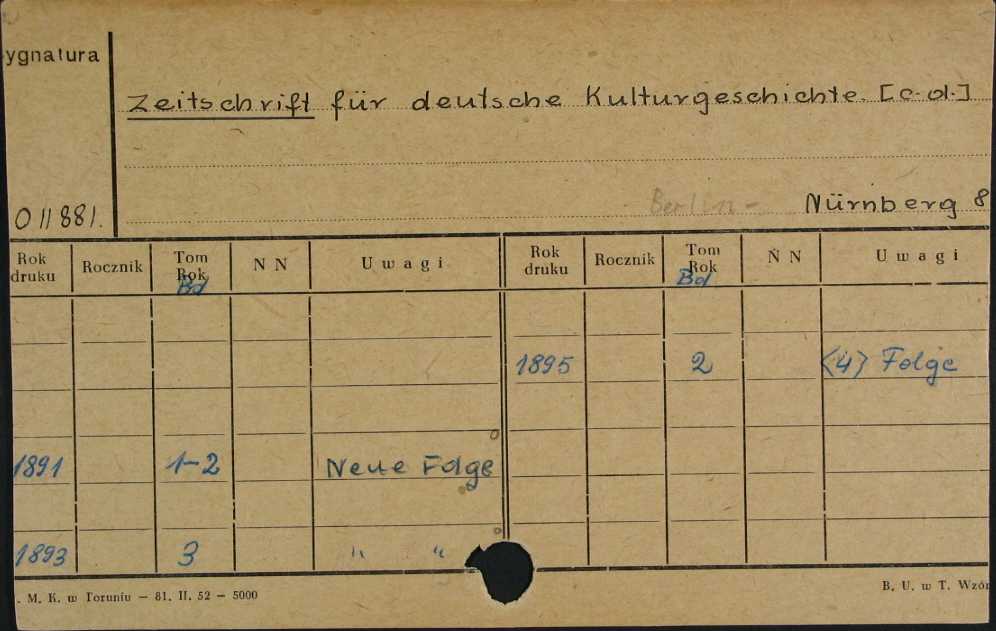 ygnatura
Zeitschrift für deutsche Kulturgeschichte. [c.d.]
Berlin- Nürnberg 8
O 11 881.
Rok druku Rocznik Tom Rok Bd N N Uwagi Rok druku Rocznik Tom Rok Bd N N Uwagi
1895 2 <4> Folge
1891 1-2 Neue Folge
1893 3 " "
. M. K. w Toruniu — 81. II. 52 — 5000
B. U. w T. Wzór